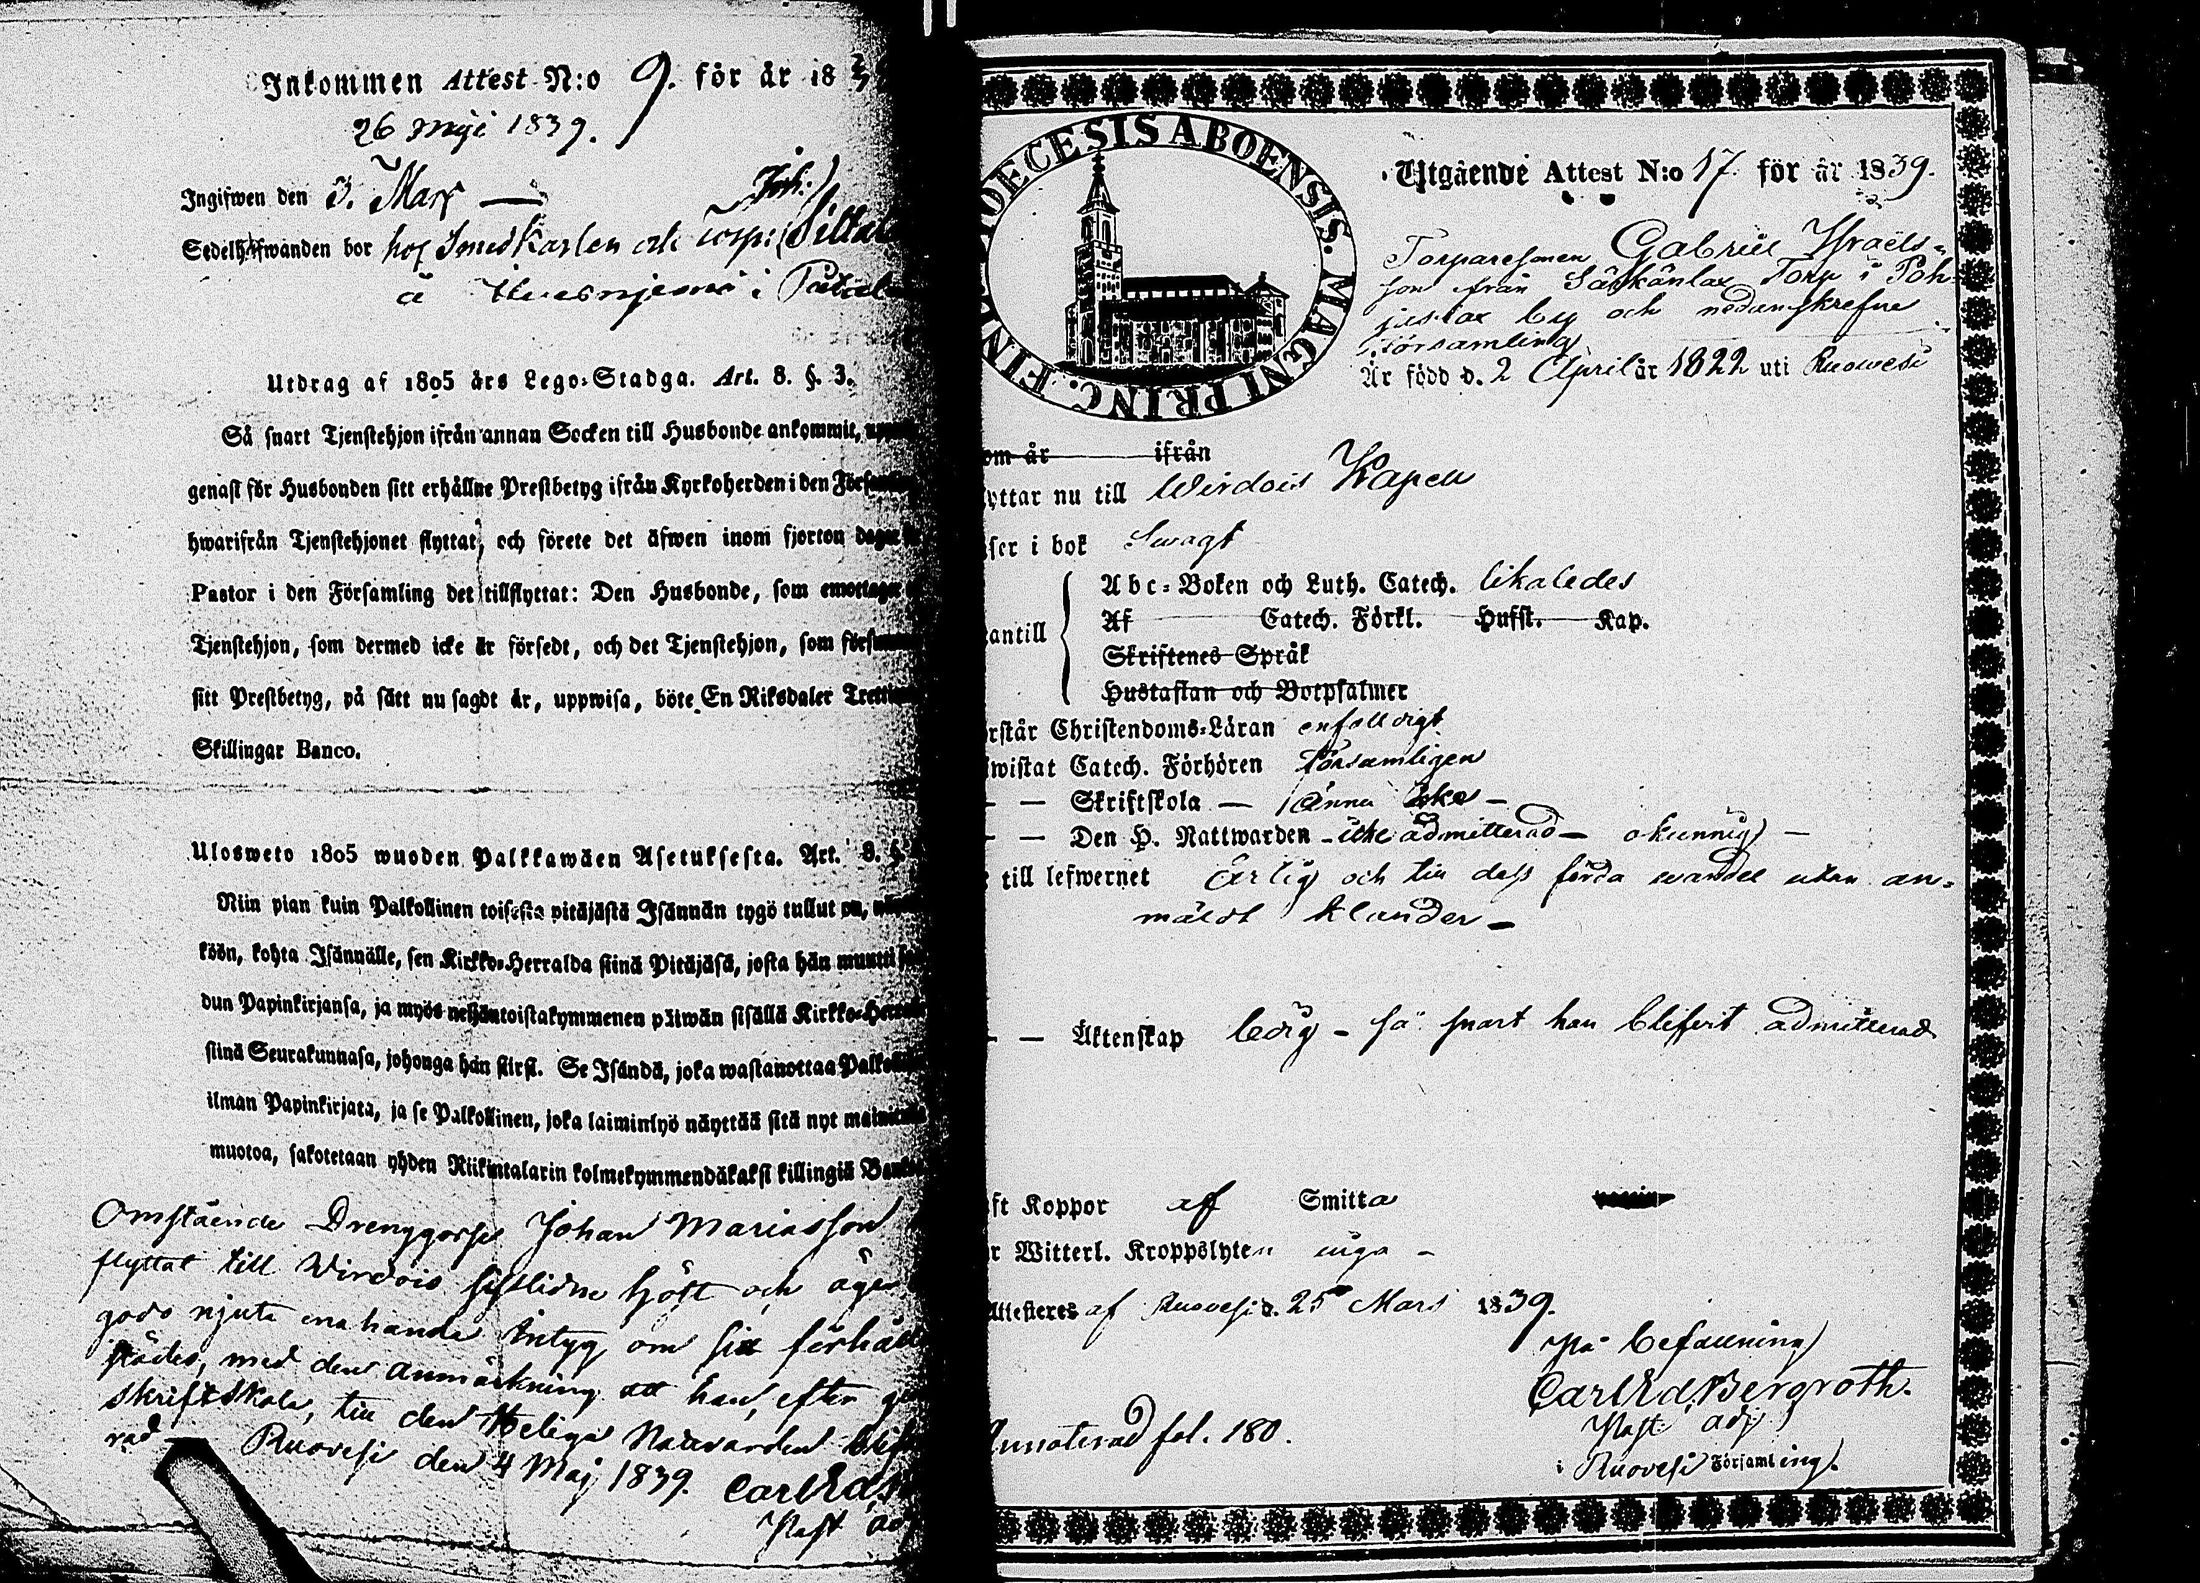 Inkommen Attest N:o 9. för år 18
26 Maji 1839.
Ingifwen den 3. Mars
Sedelhafwanden bor hos
å i
Utdrag af 1805 års Lego-Stadga. Art. 8. §. 3.
Så snart Tjenstehjon ifrån annan Socken till Husbonde ankommit,
genast för Husbonden sitt erhållne Prestbetyg ifrån Kyrkoherden i den
hwarifrån Tjenstehjonet flyttat, och förete det äfwen inom fjorton
Pastor i den Församling det tillflyttat: Den Husbonde, som emottager
Tjenstehjon, som dermed icke är försedt, och det Tjenstehjon, som
sitt Prestbetyg, på sätt nu sagdt är, uppwisa, böte En Riksdaler
Skillingar Banco.
Ulosweto 1805 wuoden Palkkawäen Asetuksesta. Art. 8. §.
Niin pian kuin Palkollinen toisesta pitäjästä Isännän tygö tullut on,
köön, kohta Isännälle, sen Kirkko-Herralda siinä Pitäjäsä, josta hän muutti
dun Papinkirjansa, ja myös neljäntoistakymmenen päiwän sisällä
siinä Seurakunnasa, johonga hän siirsi. Se Isändä, joka wastanottaa
ilman Papinkirjata, ja se Palkollinen, joka laiminlyö näyttää sitä nyt
muotoa, sakotetaan yhden Riikintalarin kolmekymmendäkaksi killingiä
Omstående Johan Mariasson
flyttat till Wirdois sistlidne höst och äger
godo njuta enahanda Intyg om sitt
städes, med den anmärkning att han, efter
Skriftskola, till den Heliga Nattvarden
rad — Ruovesi den 4 Maj 1839. Carl Ed.
Past adj
DIOECESIS ABOENSIS. MAGNI PRINC. FINL.
Utgående Attest N:o 17. för år 1839.
Torparesonen Gabriel Israëls-
son från Torp i Poh-
jaslax by och nedanskrefne
församling
Är född d. 2 April år 1822 uti Ruowesi
om år ifrån
yttar nu till Wirdois Kapell
äser i bok Swagt
Abc-Boken och Luth. Catech. likaledes
antill Af Catech. Förkl. Husst. Kap.
Skriftenes Språk
Hustaflan och Botpsalmer
rstår Christendoms-Läran enfalldigt
iwistat Catech. Förhören församligen
— — Skriftskola — ännu icke —
— — Den H. Nattwarden – icke admitterad – okunnig –
till lefwernet Ärlig och till dess förda wandel utan an-
mäldt klander –
— — Äktenskap ledig – så snart han blifvit admitterad
ft Koppor af Smitta
r Witterl. Kroppslyten inga –
Attesteres af Ruovesi d. 25 Mars 1839.
På befallning
Carl Ed. Bergroth.
Past. adj
i Ruovesi Församling.
Annoterad fol. 180.